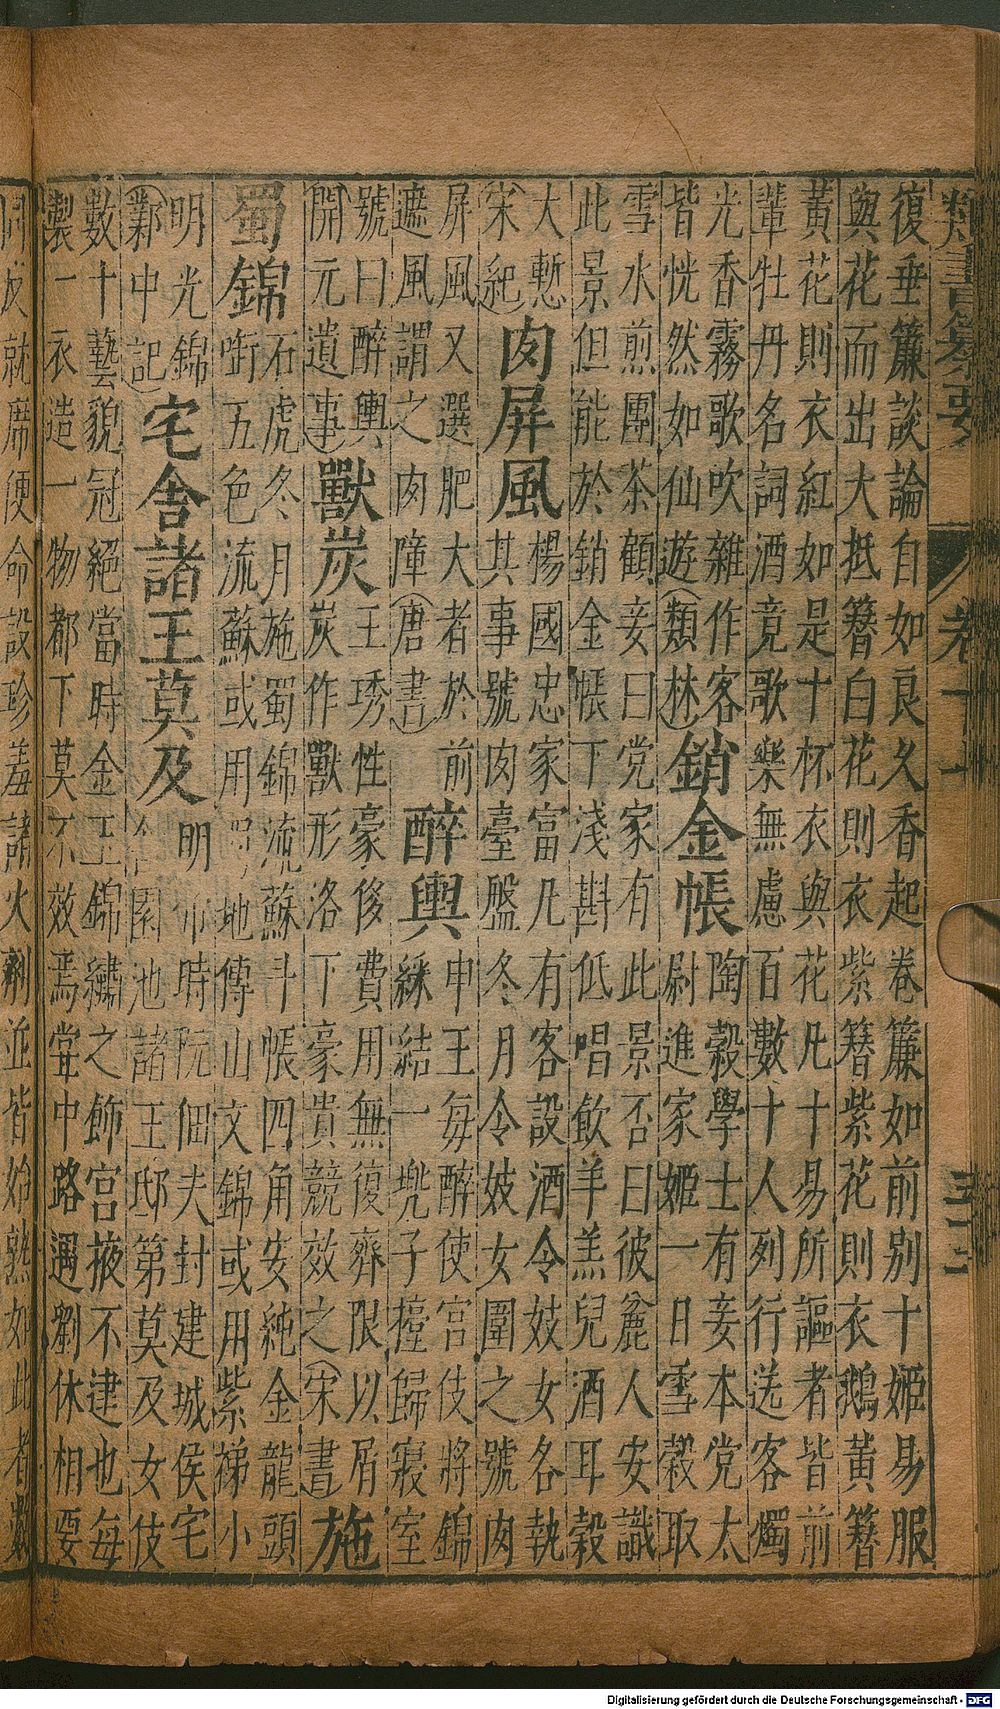 類書纂要
復垂簾談論自如良久香起卷簾如前別十姬易服
與花而出大抵簪白花則衣紫簪紫花則衣鵝黃簪
黃花則衣紅如是十杯衣與花凡十易所謳者皆前
輩牡丹名詞酒竟歌樂無慮百數十人列行送客燭
光香霧歌吹雜作客
皆恍然如仙遊(類林)
銷金帳
陶穀學士有妾本党太
尉進家姬一日雪穀取
雪水煎團茶顧妾曰党家有此景否曰彼麄人安識
此景但能於銷金帳下淺斟低唱飲羊羔兒酒耳穀
大慙
(宋紀)
肉屏風
楊國忠家富凡有客設酒令妓女各執
其事號肉臺盤冬月令妓女圍之號肉
屏風又選肥大者於前
遮風謂之肉障(唐書)
醉輿
申王每醉使宮伎將錦
綵結一兠子擡歸寢室
號曰醉輿
(開元遺事)
獸炭
王琇性豪侈費用無復齊限以屑
炭作獸形洛下豪貴競效之(宋書)
施
蜀錦
石虎冬月施蜀錦流蘇斗帳四角安純金龍頭
銜五色流蘇或用地傳山文錦或用紫綈小
明光錦
(鄴中記)
宅舍諸王莫及
明帝時阮佃夫封建城侯宅
舍園池諸王邸第莫及女伎
數十藝貌冠絕當時金玉錦繡之飾宮掖不逮也每
製一衣造一物都下莫不效焉甞中路遇劉休相要
同反就席便命設珍羞諸火劑並皆始熟如此者數
Digitalisierung gefördert durch die Deutsche Forschungsgemeinschaft - DFG